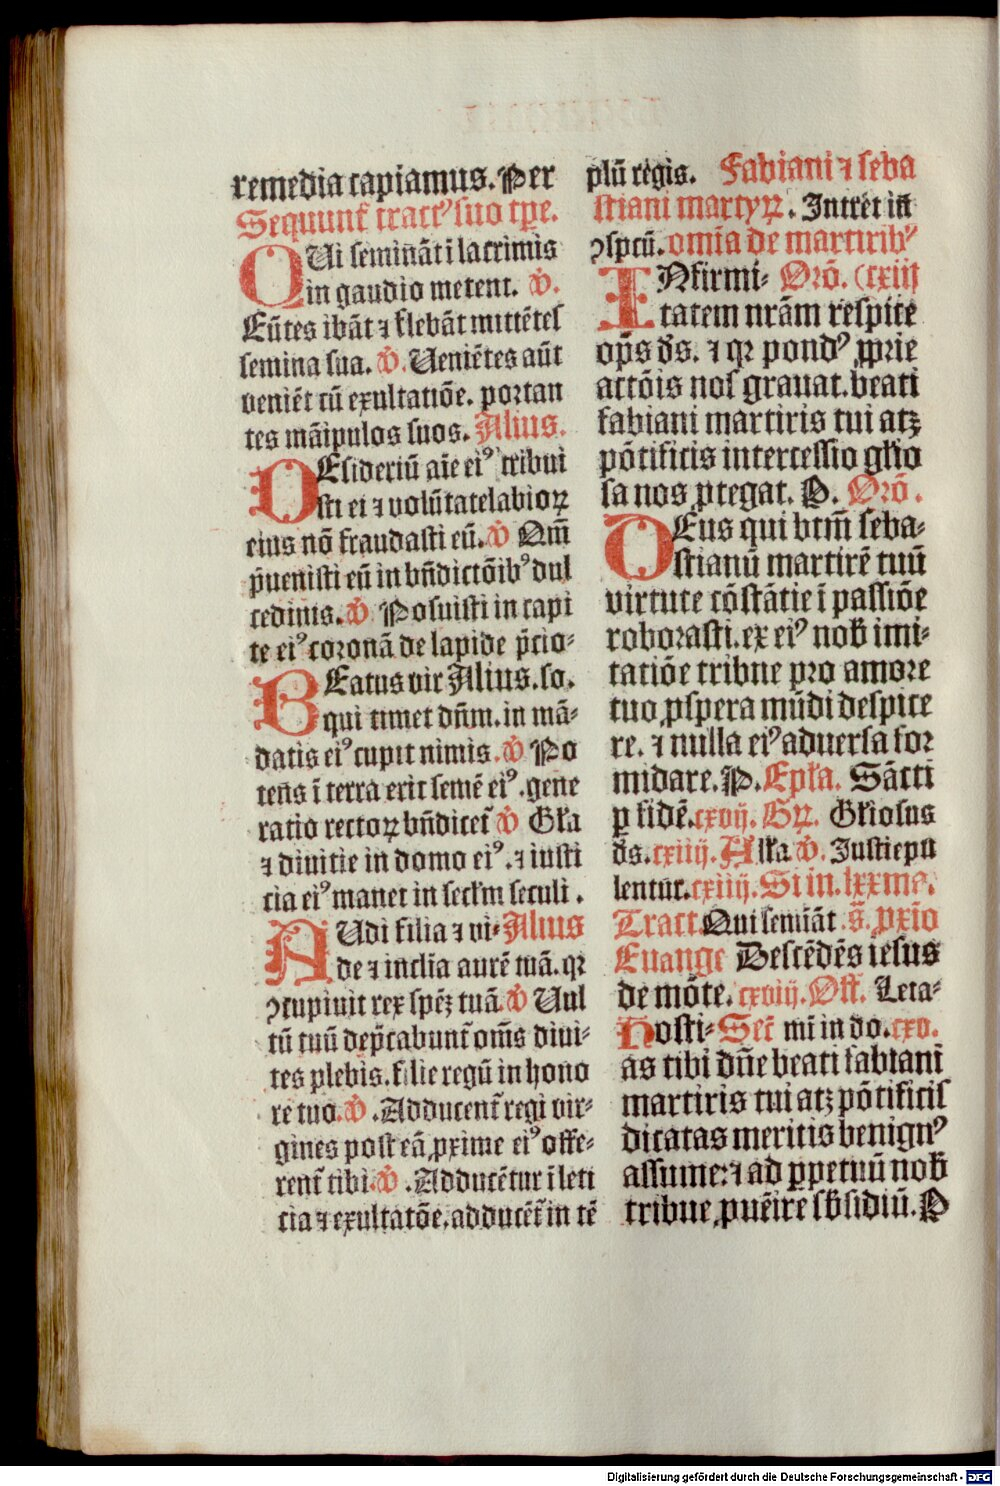 remedia capiamus. Per
Sequunt̄ tractꝰ suo tꝑe.
QUi semināt ī lacrimis
in gaudio metent. v̓.
Eūtes ibāt ⁊ flebāt mittētes
semina sua. v̓. Ueniētes aūt
veniēt cū exultatiōe. portan
tes māipulos suos. Alius.
DEsideriū aīe eiꝰ tribui
sti ei ⁊ volūtate labioꝝ
eius nō fraudasti eū. v̓ Qm̄
p̄uenisti eū in bn̄dictōibꝰ dul
cedinis. v̓ Posuisti in capi
te eiꝰ coronā de lapide p̄cio-
BEatus vir Alius. so.
qui timet dn̄m. in mā-
datis eiꝰ cupit nimis. v̓ Po
tēs ī terra erit semē eiꝰ. gene
ratio rectoꝝ bn̄dicet̄ v̓ Gl̄a
⁊ diuitie in domo eiꝰ. ⁊ iusti
cia eiꝰ manet in secl̄m seculi.
AUdi filia ⁊ vi- Alius
de ⁊ inclīa aurē tuā. qꝛ
ꝯcupiuit rex spēꝫ tuā. v̓ Uul
tū tuū dep̄cabunt̄ om̄s diui-
tes plebis. filie regū in hono
re tuo. v̓. Adducent̄ regi vir-
gines post eā ꝓxime eiꝰ offe-
rent̄ tibi. v̓. Adducētur ī leti
cia ⁊ exultatōe, adducēt̄ in tē
plū regis. Fabiani ⁊ seba
stiani martyꝝ. Intrēt in̄
ꝯsptū. omīa de martiribꝰ
INfirmi- Orō. (cxiij
tatem nrām respice
ops̄ ds̄. ⁊ qꝛ pondꝰ ꝓprie
actōis nos grauat. beati
fabiani martiris tui atꝫ
pōtificis intercessio gl̄io
sa nos ꝓtegat. P. Orō.
DEus qui btm̄ seba-
stianū martirē tuū
virtute cōstātie ī passiōe
roborasti. ex eiꝰ nob̄ imi-
tatiōe tribue pro amore
tuo ꝓspera mūdi despice
re. ⁊ nulla eiꝰ aduersa for
midare. P. Epl̄a. Sācti
ꝑ fidē. cxvij. Gꝝ. Gl̄iosus
ds̄. cxiiij. All̄a v̓. Justi epu
lentur. cxiiij. Si in. lxxma.
Tract. Qui semīāt. s̄. ꝓxīo
Euange Descēdēs iesus
de mōte. cxviij. Off. Leta-
Hosti- Secr̄ mī in do. cxv.
as tibi dn̄e beati fabiani
martiris tui atꝫ pōtificis
dicatas meritis benignꝰ
assume: ⁊ ad ꝑpetuū nob̄
tribue ꝓuēire sb̄sidiū. P
Digitalisierung gefördert durch die Deutsche Forschungsgemeinschaft - DFG